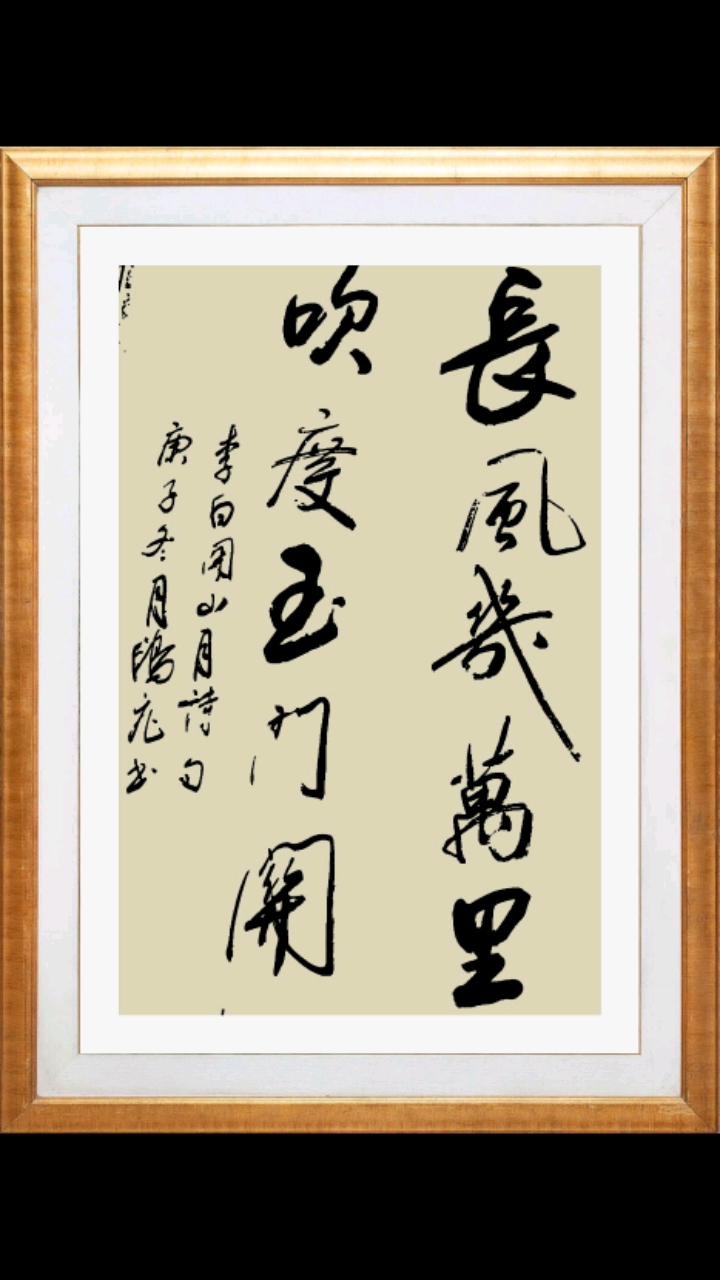 長風幾萬里
吹度玉門關
李白関山月詩句
庚子冬月鴻彪書